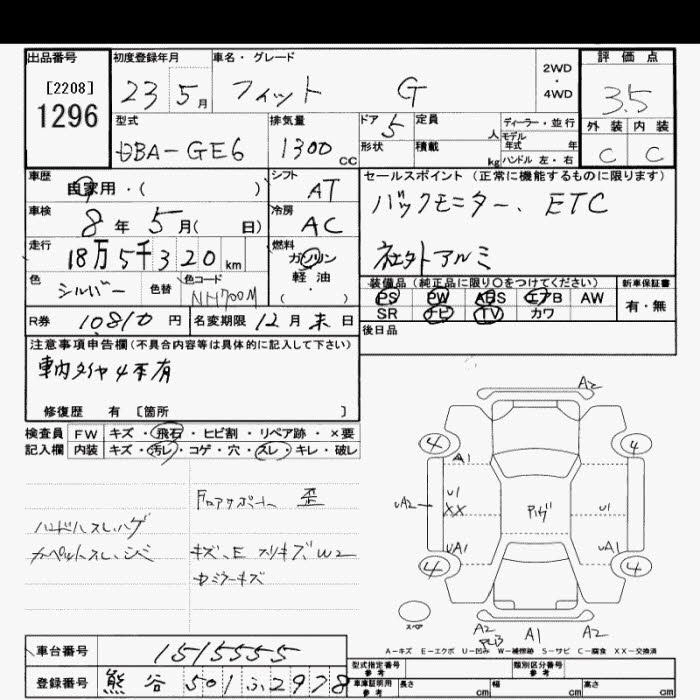 出品番号
[2208]
1296
初度登録年月
23 5月
車名・グレード
フィット G
2WD
・
4WD
評価点
3.5
外装 内装
C C
型式
DBA-GE6
排気量
1300 CC
ドア 5
形状
定員 人
積載 kg
ディーラー・並行
モデル年式 年
ハンドル 左・右
車歴
自家用・( )
シフト
AT
セールスポイント (正常に機能するものに限ります)
バックモニター、ETC
社外アルミ
車検
8年 5月( 日)
冷房
AC
走行
18万5千320km
燃料
ガソリン
軽油
( )
色
シルバー
色替
色コード
NH700M
装備品(純正品に限り○をつけてください)
PS PW ABS エアB AW
SR ナビ TV カワ
新車保証書
有・無
R券 10810円
名変期限 12月末日
後日品
注意事項申告欄(不具合内容等は具体的に記入して下さい)
車内タイヤ4本有
修復歴 有 [箇所 ]
検査員
記入欄
FW キズ・飛石・ヒビ割・リペア跡・×要
内装 キズ・汚レ・コゲ・穴・スレ・キレ・破レ
フロアサポート 歪
ハンドルスレ、ハゲ
カーペットスレ、シミ
キズ、E スリキズ W2
A2
4 4
A1
U1
XX
UA2
UA1
ﾅｼｸﾞ
U1
UA1
4 4
スペア
A2
A1
A2
A-キズ E-エクボ U-凹み W-補修跡 S-サビ C-腐食 XX-交換済
車台番号 1515555
登録番号 熊谷 501 ふ 2978
型式指定番号
参考
類別区分番号
参考
車庫証明用
参考
長さ cm
幅 cm
高さ cm